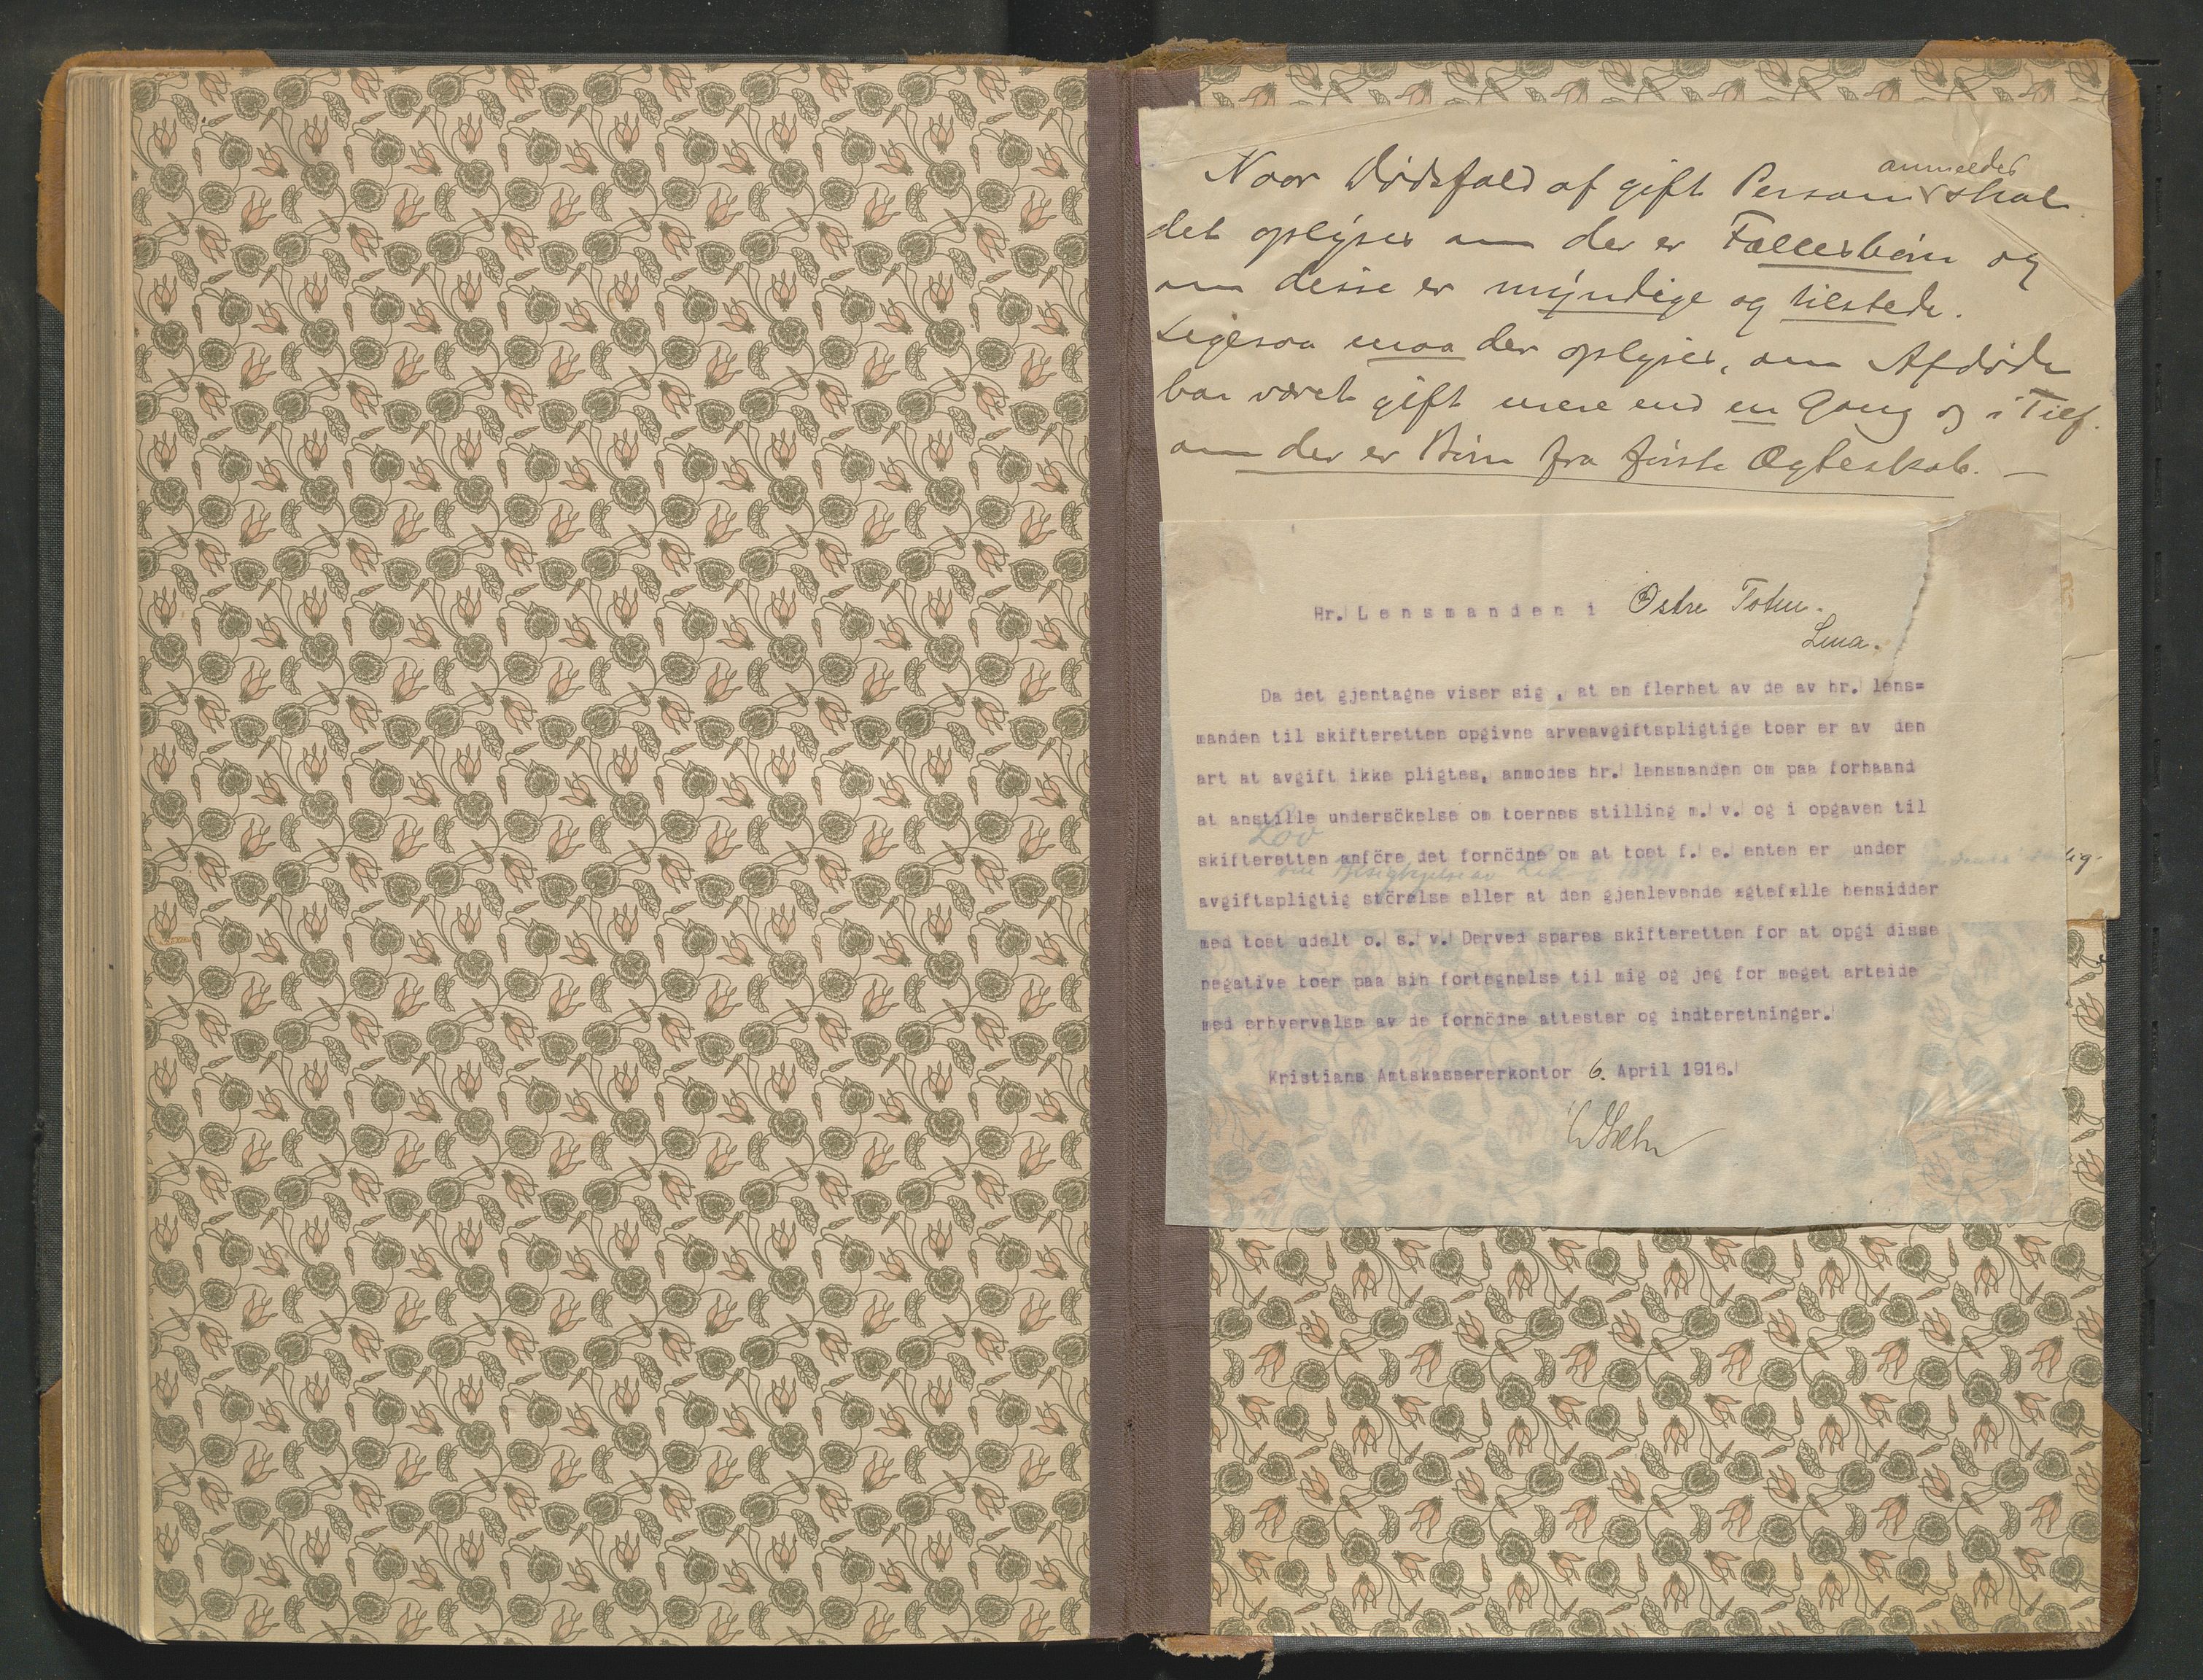 anmeldes
Naar Dødsfald af gift Person skal
det oplyses om der er Fællesbørn og
om disse er myndige og tilstede.
Ligesaa maa der oplyses, om Afdøde
har været gift mere end en Gang og i Tilf.
om der er Børn fra første Ægteskab. —
Hr. Lensmanden i Østre Toten.
Lena.
Da det gjentagne viser sig, at en flerhet av de av hr. lens=
manden til skifteretten opgivne arveavgiftspligtige boer er av den
art at avgift ikke pligtes, anmodes hr. lensmanden om paa forhaand
at anstille undersökelse om boernes stilling m. v. og i opgaven til
Lov
skifteretten anföre det fornödne om at boet f. e. enten er under
lig.
avgiftspligtig störelse eller at den gjenlevende ægtefælle hensidder
med boet udelt o. s. v. Derved spares skifteretten for at opgi disse
negative boer paa sin fortegnelse til mig og jeg for meget arbeide
med erhvervelse av de fornödne attester og indberetninger.
Kristians Amtskassererkontor 6. April 1916.